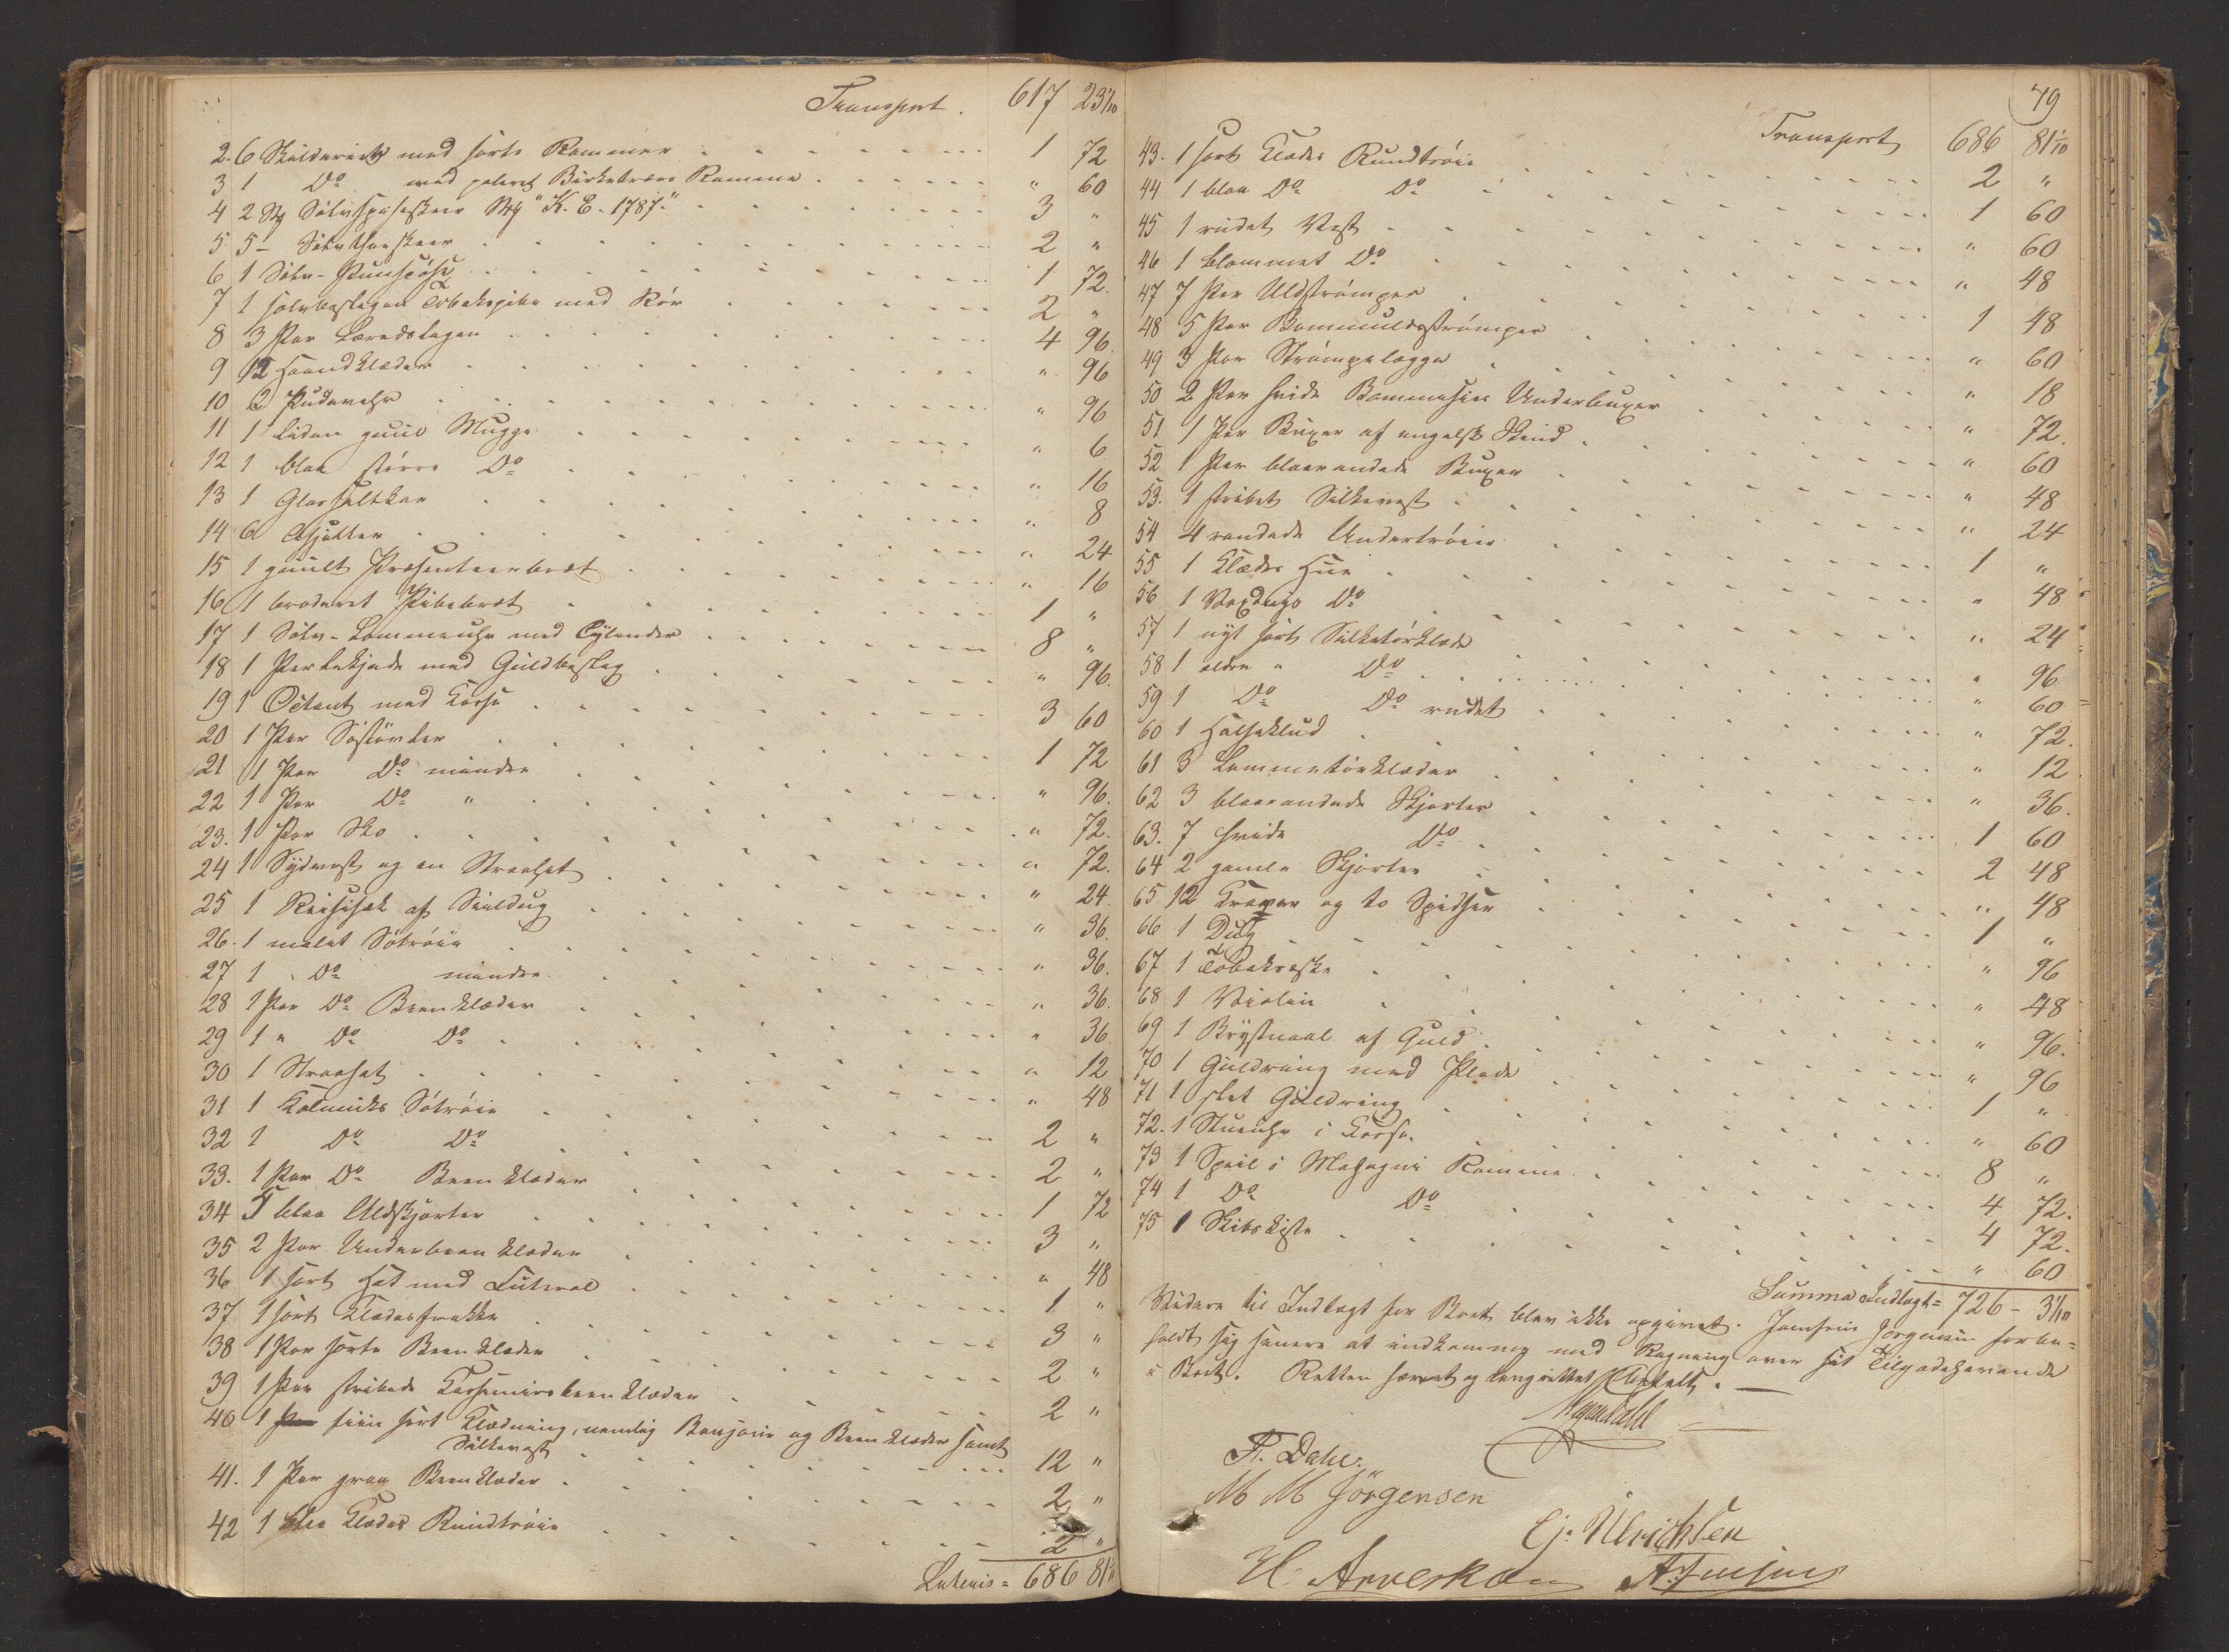 Transport. 617 23 1/10
2. 6 Skilderiets med sorte Rammer 1 72
3 1 Do med poleret Birketræes Ramme " 60
4 2 St Sølvspiseskeer St "K. E. 1787." 3 "
5 5 - Sølvtheeskeer 2 "
6 1 Sølv-Punscøse 1 72.
7 1 sølvbeslagen Tobakspibe med Rør 2 "
8 3 Par Lærredslagen 4 96.
9 12 Haandklæder " 96
10 6 Pudevahr " 96
11 1 liden guul Mugge " 6
12 1 blaa større Do " 16
13 1 Glassaltkar " 8
14 6 Asjetter " 24
15 1 guult Præsenteerbræt " 16
16 1 broderet Pibebræt 1 "
17 1 Sølv-Lommeuhr med Cylender 8 "
18 1 Perlekjæde med Guldbeslag " 96.
19 1 Octant med Kasse 3 60
20 1 Par Søstøvler 1 72
21 1 Par Do mindre " 96.
22 1 Par Do " " 72.
23. 1 Par Sko " 72.
24 1 Sydvest og en Straahat " 24.
25 1 Reisesæk af Seildug " 36.
26. 1 malet Søtrøie " 36.
27 1 Do mindre " 36.
28 1 Par Do Beenklæder " 36
29 1 " Do Do " 12
30 1 Straahat " 48
31 1 Kalmuks Søtrøie 2 "
32 1 Do Do 2 "
33. 1 Par Do Beenklæder 1 72
34 3 blaa Uldskjorter 3 "
35 2 Par Underbeenklæder " 48
36 1 sort Hat med Futeral 1 "
37 1 sort Klædesfrakke 3 "
38 1 Par sorte Beenklæder 2 "
39 1 Par stribede Cassimirsbeenklæder 2 "
40 1 fiin sort Klædning, nemlig Bonjour og Beenklæder samt
Silkevest 12 "
41. 1 Par graa Beenklæder 2 "
42 1 blaa Klædes Rundtrøie 2 "
Lateris = 686 81 1/10
79
Transport 686 81 1/10
43. 1 sort Klædes Rundtrøie 2 "
44 1 blaa Do Do 1 60
45 1 rudet Vest " 60
46 1 blommet Do " 48
47 7 Par Uldstrømper 1 48
48 5 Par Bommuldsstrømper " 60
49 3 Par Strømpelægge " 18
50 2 Par hvide Bommesies Underbuxer " 72.
51 1 Par Buxer af engelsk Skind " 60
52 1 Par blaarandede Buxer " 48
53. 1 stribet Silkevest " 24
54 4 randede Undertrøier 1 "
55 1 Klædes Hue " 48
56 1 Voxdugs Do " 24
57 1 nyt sort Silketørklæde " 96
58 1 ældre " Do " 60
59 1 Do Do rudet " 72.
60 1 Halseklud " 12
61 3 Lommetørklæder " 36.
62 3 blaarandede Skjorter 1 60
63. 7 hvide Do 2 48
64 2 gamle Skjorter " 48
65 12 Kraver og to Spidser 1 "
66 1 Dug " 96
67 1 Tobakræske " 48
68 1 Violin " 96.
69 1 Brystnaal af Guld " 96
70 1 Guldring med Plade 1 "
71 1 slet Guldring " 60
72. 1 Stueuhr i Kasse. 8 "
73 1 Speil i Mahagni Ramme 4 72.
74 1 Do Do 4 72.
75 1 Skibskiste " 60
Summa Indtægt = 726 - 31/10
Videre til Indtægt for Boet blev ikke opgivet. Jomfru Jørgensen forbe-
holdt sig senere at indkomme med Regning over sit Tilgodehavende
i Boet. Retten hævet og
F. Dahl.
M M Jörgensen
Cj. Ulrichsen
H. Arveskou A. Jensen